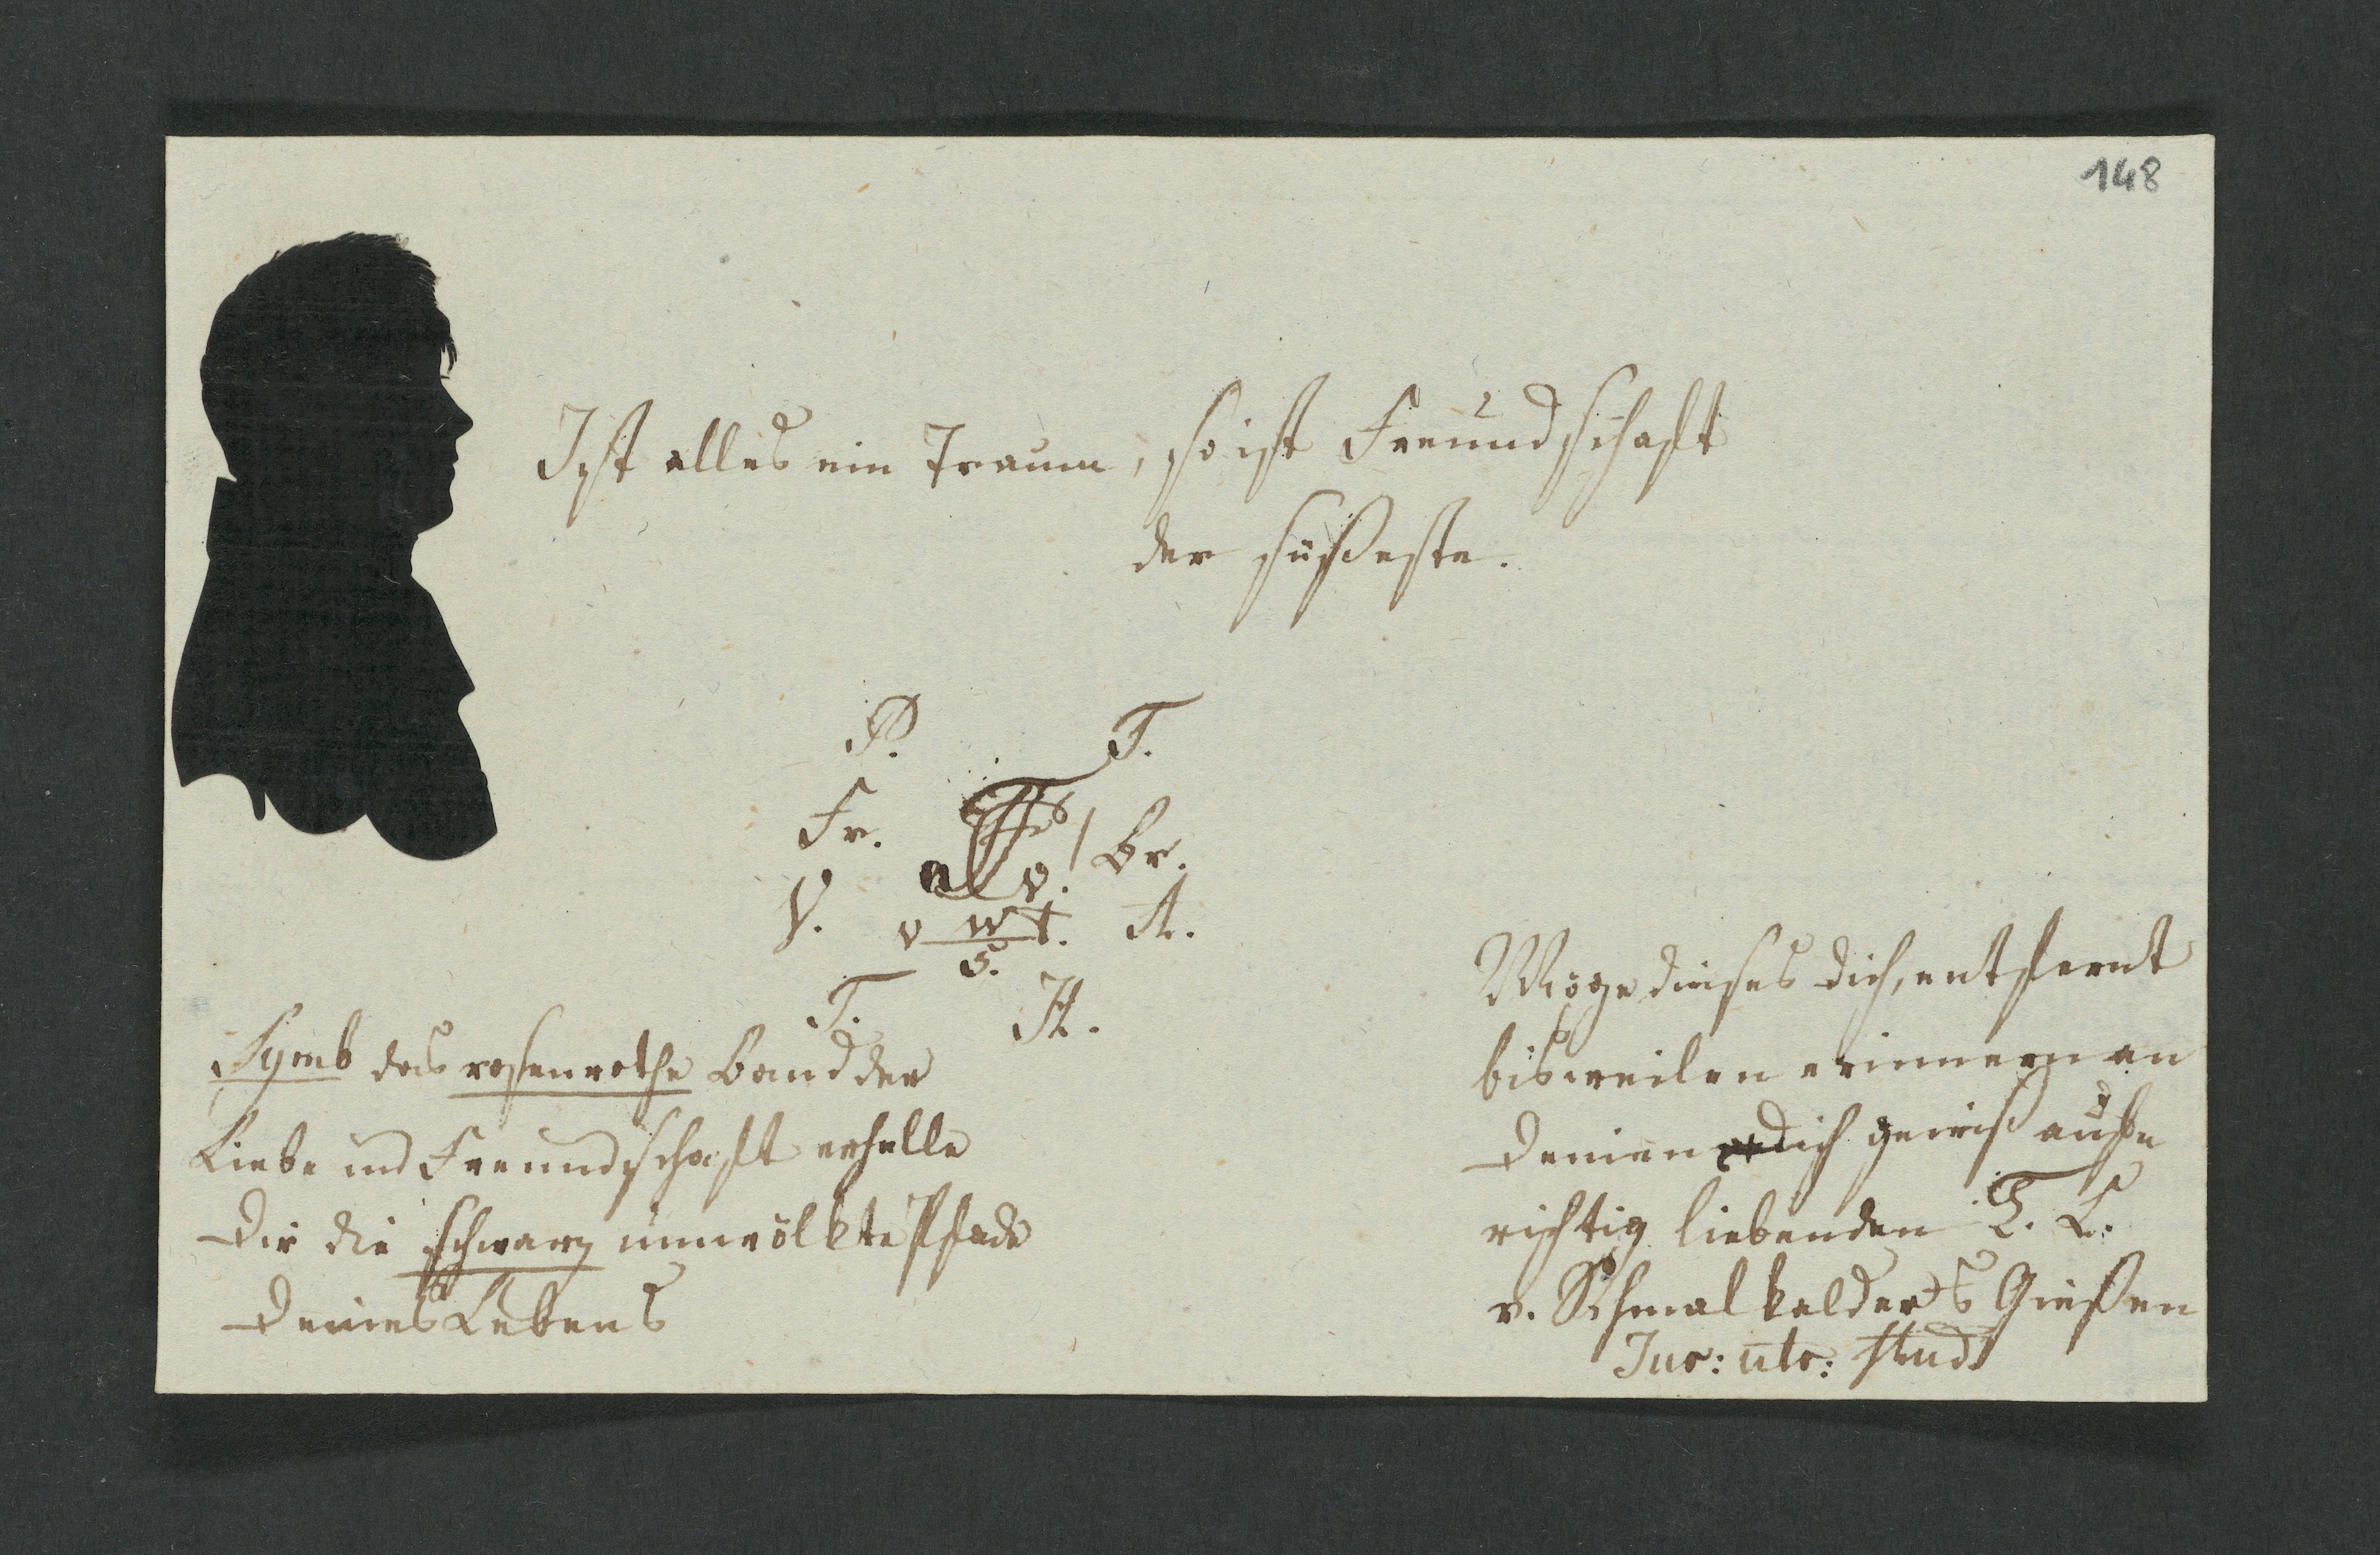 148
Ist alles ein Traum, so ist Freundschaft
der süßeste.
P. T.
Fr. Br.
V. v.
v w t. A.
5.
T. H.
Symb das rosenrothe Band der
Liebe und Freundschaft erhelle
Dir die schwarz umwölkte Pfade
Deines Lebens
Möge dieses dich, entfernt
bisweilen erinnern an
Deinen dich gewiß auf
richtig liebenden L. L.
v. Schmalkalder Gießen
Jur: utr: stud